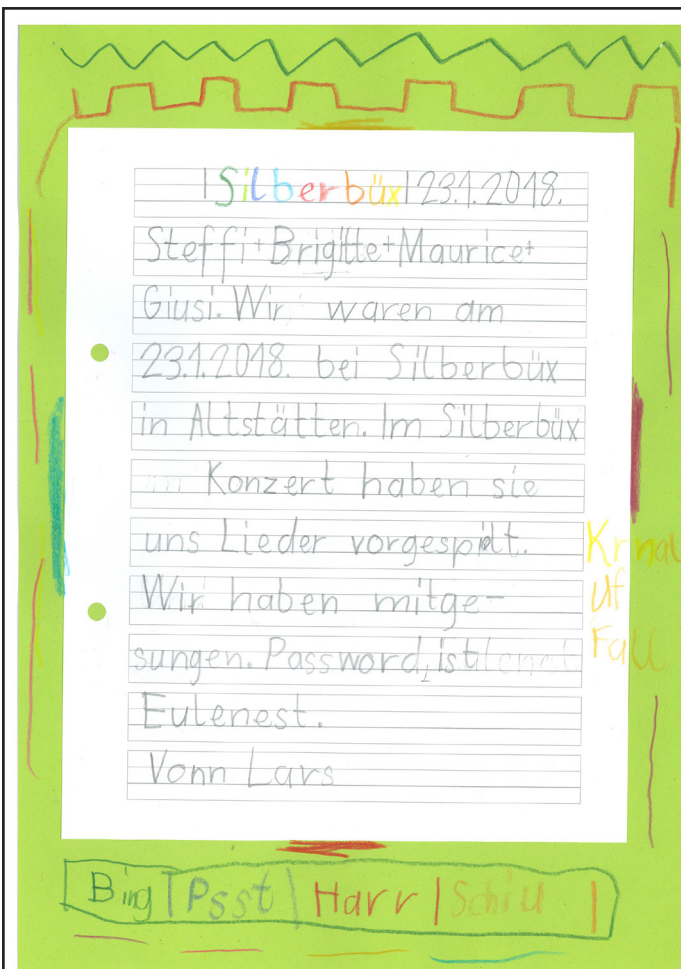 Silberbüx 23.1.2018.
Steffi+Brigitte+Maurice+
Giusi. Wir waren am
23.1.2018. bei Silberbüx
in Altstätten. Im Silberbüx
Konzert haben sie
uns Lieder vorgespilt.
Wir haben mitge-
sungen. Password, ist
Eulenest.
Vonn Lars
Uf
Fall
Bing Psst Harr